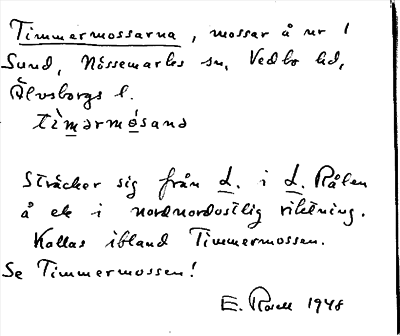 Timmermossarna, mossar å nr 1
Sund, Nössemarks sn, Vedbo hd,
Älvsborgs l.
tìmərmósanə
Sträcker sig från d. i d. Rålen
å ek i nordnordostlig riktning.
Kallas ibland Timmermossen.
Se Timmermossen!
E. Rosell 1948